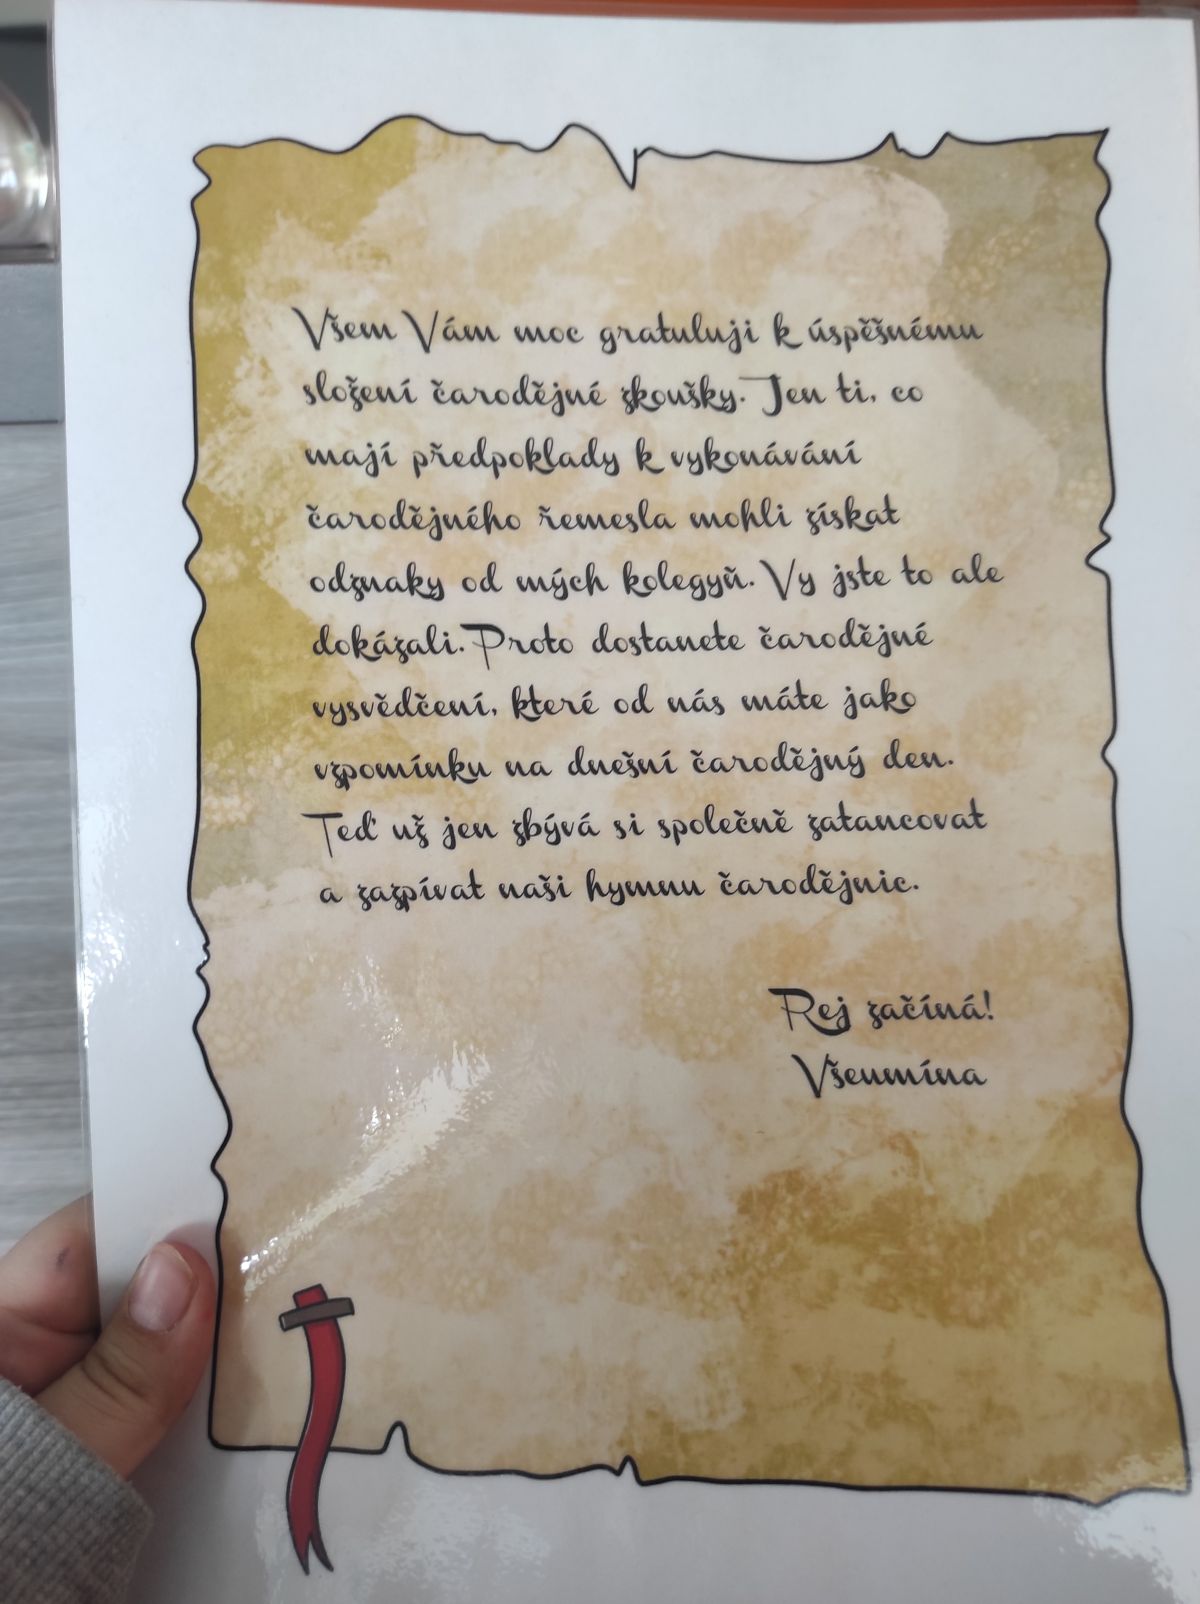 Všem Vám moc gratuluji k úspěšnému
složení čarodějné zkoušky. Jen ti, co
mají předpoklady k vykonávání
čarodějného řemesla mohli získat
odznaky od mých kolegyň. Vy jste to ale
dokázali. Proto dostanete čarodějné
vysvědčení, které od nás máte jako
vzpomínku na dnešní čarodějný den.
Teď už jen zbývá si společně zatancovat
a zazpívat naši hymnu čarodějnic.
Rej začíná!
Všeumína